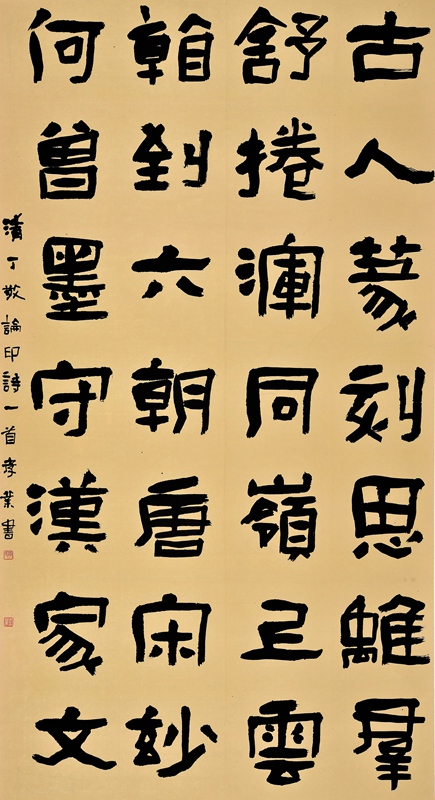 古人篆刻思離羣
舒捲渾同嶺上雲
看到六朝唐宋妙
何曾墨守漢家文
清丁敬論印詩一首孝業書